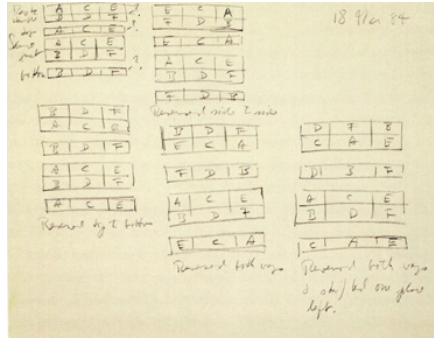 A C E
B D F
A C E
A C E
B D F
bottom B D F
E C A
F D B
E C A
A C E
B D F
F D B
Reversed side to side
B D F
A C E
B D F
A C E
B D F
A C E
Reversed top to bottom
B D F
E C A
F D B
A C E
B D F
E C A
Reversed both ways
D F B
C A E
D B F
A C E
B D F
C A E
Reversed both ways
& shifted one place
left.